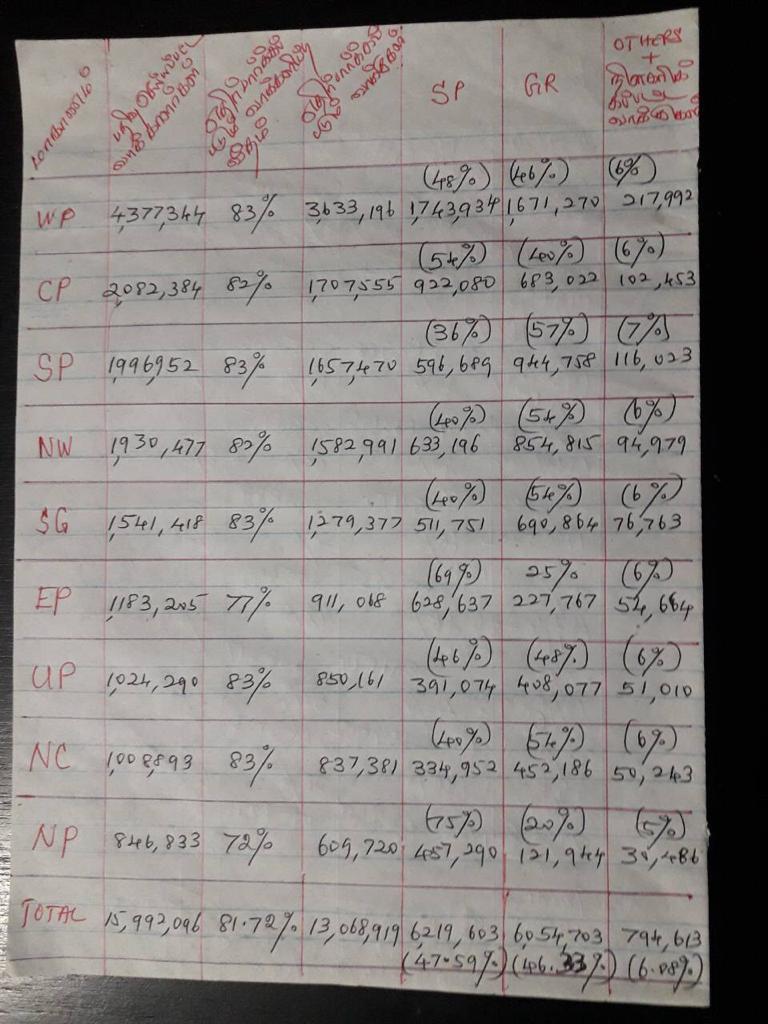 மாகாணம் பதிவு செய்யப்பட்ட வாக்காளர்கள் எதிர்பார்க்கப்படும் வாக்களிப்பு வீதம் எதிர்பார்க்கப்படும் வாக்குகள் SP GR OTHERS + நிராகரிக்கப்பட்ட வாக்குகள்
(48%) (46%) (6%)
WP 4,377,344 83% 3,633,196 1,743,934 1,671,270 217,992
(54%) (40%) (6%)
CP 2,082,384 82% 1,707,555 922,080 683,022 102,453
(36%) (57%) (7%)
SP 1,996,952 83% 1,657,470 596,689 944,758 116,023
(40%) (54%) (6%)
NW 1,930,477 82% 1,582,991 633,196 854,815 94,979
(40%) (54%) (6%)
SG 1,541,418 83% 1,279,377 511,751 690,864 76,763
(69%) 25% (6%)
EP 1,183,205 77% 911,068 628,637 227,767 54,664
(46%) (48%) (6%)
UP 1,024,290 83% 850,161 391,074 408,077 51,010
(40%) (54%) (6%)
NC 1,008,893 83% 837,381 334,952 452,186 50,243
(75%) (20%) (5%)
NP 846,833 72% 609,720 457,290 121,944 30,486
TOTAL 15,992,096 81.72% 13,068,919 6,219,603 6,054,703 794,613
(47.59%) (46.33%) (6.08%)